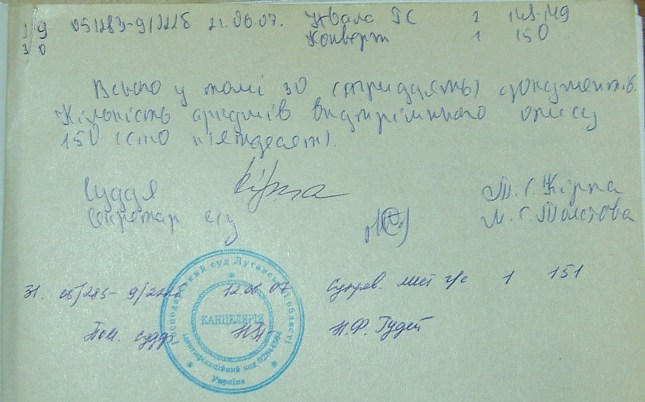 29 05/283-9/222б 21.06.07. Ухвала ГС 2 148-149
30 Конверт 1 150
Всього у томі 30 (тридцять) документів.
Кількість аркушів внутрішнього опису
150 (сто п'ятдесят).
Суддя Т.Г. Жірна
Секретар с/з М.Г. Толстова
Господарський суд Луганської області
31. 12.06.07 Супров. лист г/с 1 151
КАНЦЕЛЯРІЯ
Пом. судді Н.Ф. Гудей
Ідентифікаційний код
Україна